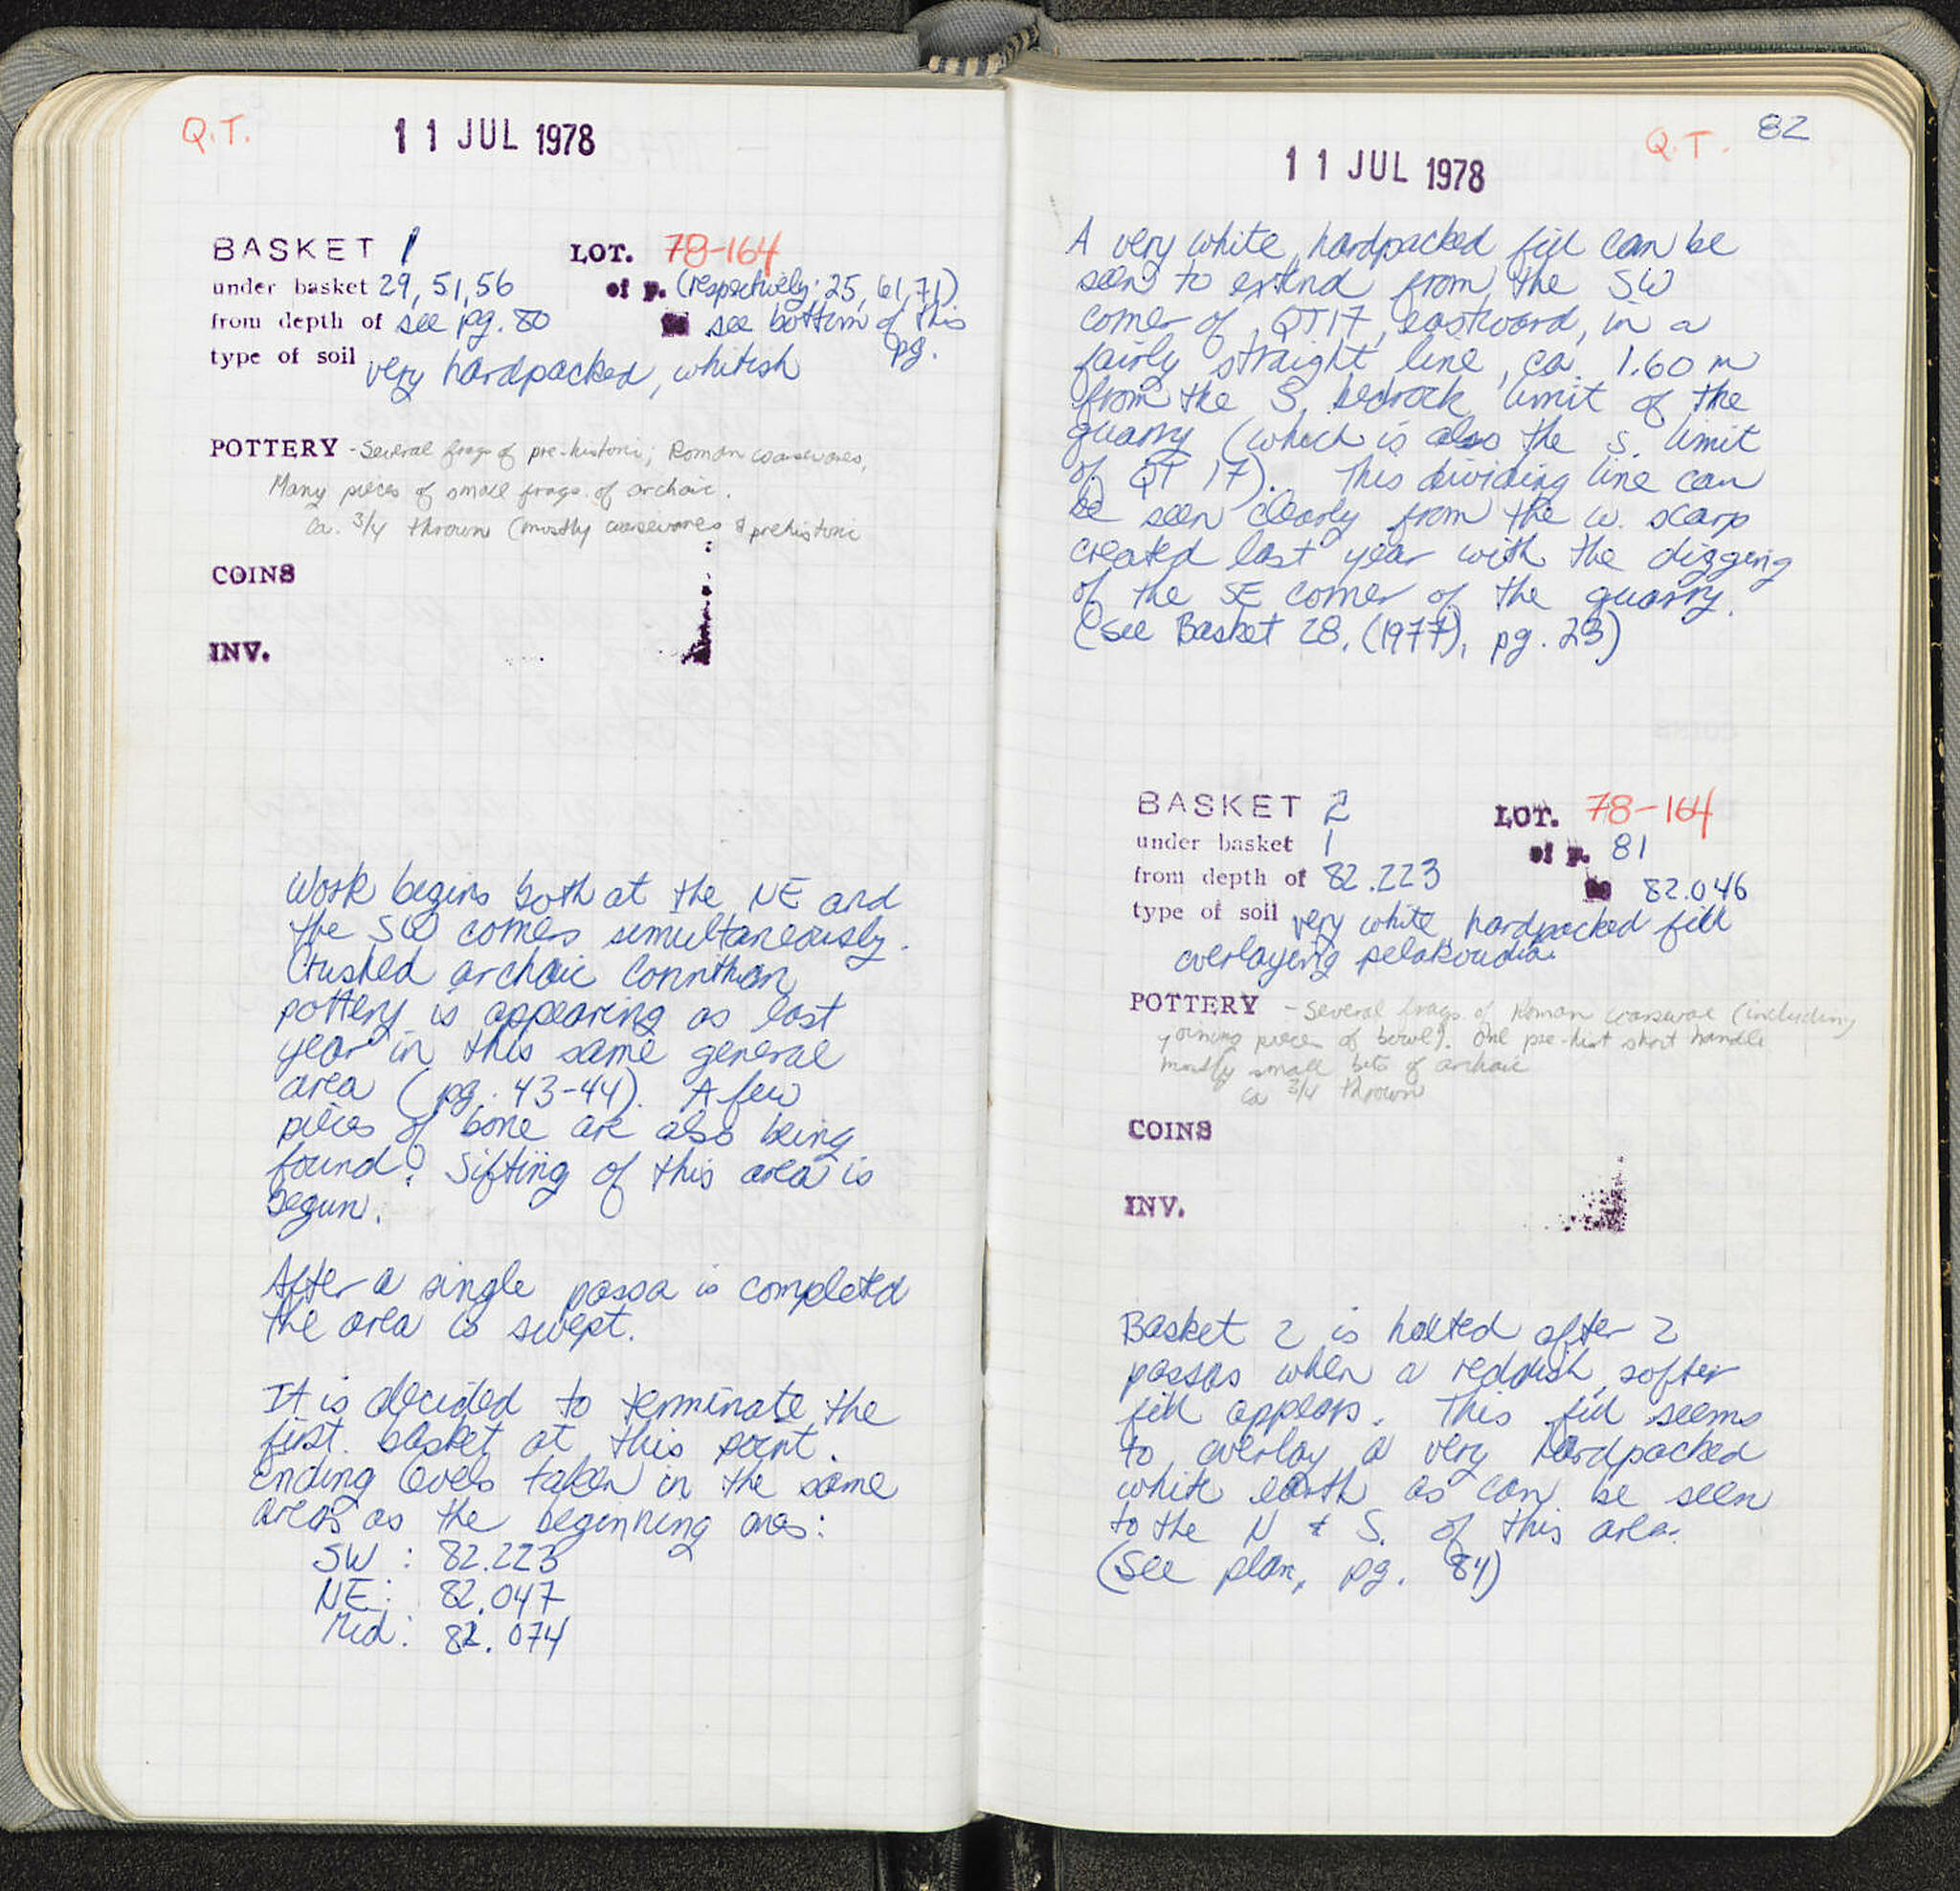 Q.T.
11 JUL 1978
BASKET 1 LOT. 78-164
under basket 29, 51, 56 of p. (respectively: 25, 61, 71)
from depth of see pg. 80 to see bottom of this
pg.
type of soil very hardpacked, whitish
POTTERY - Several frags of pre-historic; Roman coarsewares,
Many pieces of small frags. of archaic.
ca. 3/4 thrown (mostly coarsewares & prehistoric
COINS
INV.
Work begins both at the NE and
the SW corners simultaneously.
Crushed archaic Corinthian
pottery is appearing as last
year in this same general
area (pg. 43-44). A few
pieces of bone are also being
found. Sifting of this area is
begun.
After a single passa is completed
the area is swept.
It is decided to terminate the
first basket at this point.
Ending levels taken in the same
areas as the beginning ones:
SW : 82.223
NE : 82.047
Mid : 82.074
Q.T. 82
11 JUL 1978
A very white, hardpacked fill can be
seen to extend from the SW
corner of QT17, eastward, in a
fairly straight line, ca. 1.60 m
from the S. bedrock limit of the
quarry (which is also the S. limit
of QT 17). This dividing line can
be seen clearly from the W. scarp
created last year with the digging
of the SE corner of the quarry.
(See Basket 28, (1977), pg. 23)
BASKET 2 LOT. 78-164
under basket 1 of p. 81
from depth of 82.223 to 82.046
type of soil very white, hardpacked fill
overlaying pelakoudia.
POTTERY - Several frags. of Roman coarseware (including
joining pieces of bowl). One pre-hist short handle
mostly small bits of archaic
ca 3/4 thrown
COINS
INV.
Basket 2 is halted after 2
passas when a reddish, softer
fill appears. This fill seems
to overlay a very hardpacked
white earth as can be seen
to the N & S. of this area.
(See plan, pg. 84)